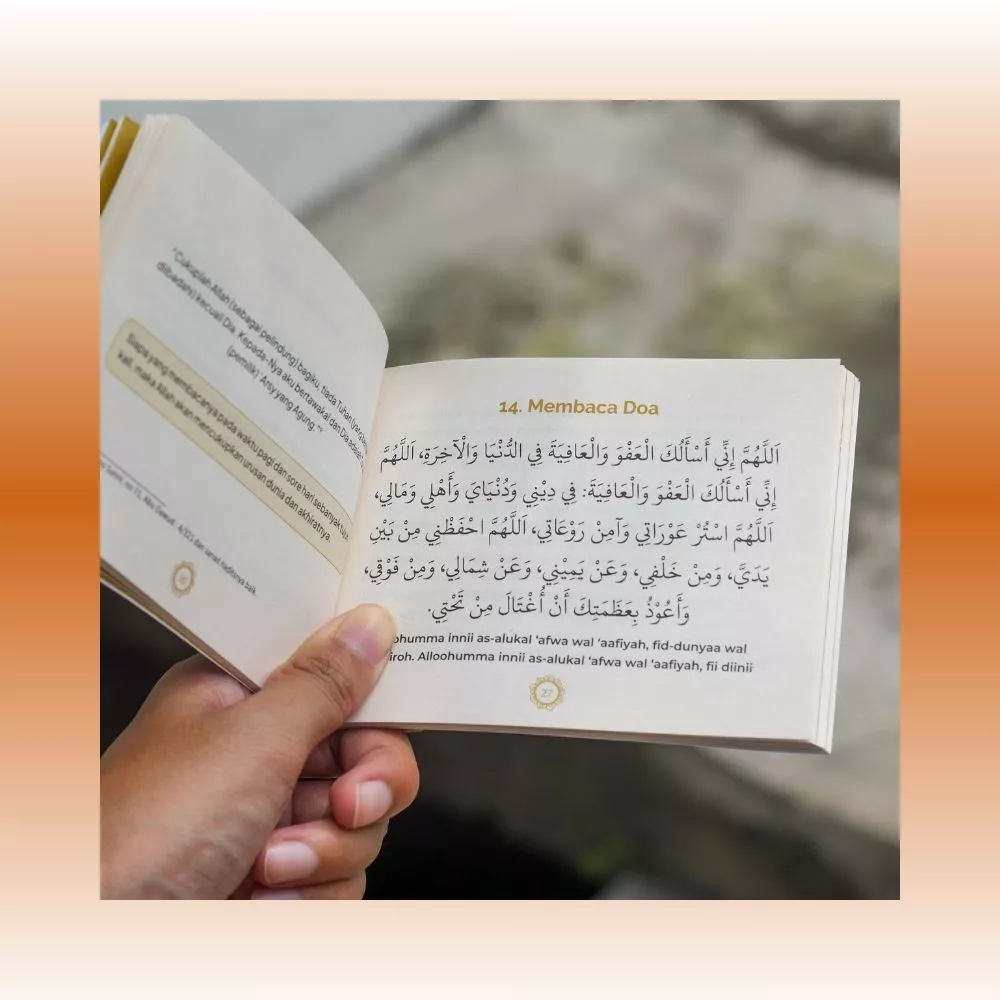 "Cukuplah Allah (sebagai pelindung) bagiku, tiada Tuhan (yang
diibadahi) kecuali Dia. Kepada-Nya aku bertawakal dan Dia
(pemilik) 'Arsy yang Agung."
Siapa yang membacanya pada waktu pagi dan sore hari sebanyak tujuh
kali, maka Allah akan mencukupkan urusan dunia dan akhiratnya.
no 71, Abu Dawud, 4/321 dan sanad haditsnya baik.
14. Membaca Doa
اَللَّهُمَّ إِنِّي أَسْأَلُكَ الْعَفْوَ وَالْعَافِيَةَ فِي الدُّنْيَا وَالْآخِرَةِ، اَللَّهُمَّ
إِنِّي أَسْأَلُكَ الْعَفْوَ وَالْعَافِيَةَ: فِي دِيْنِي وَدُنْيَايَ وَأَهْلِي وَمَالِي،
اَللَّهُمَّ اسْتُرْ عَوْرَاتِي وَآمِنْ رَوْعَاتِي، اَللَّهُمَّ احْفَظْنِي مِنْ بَيْنِ
يَدَيَّ، وَمِنْ خَلْفِي، وَعَنْ يَمِيْنِي، وَعَنْ شِمَالِي، وَمِنْ فَوْقِي،
وَأَعُوْذُ بِعَظَمَتِكَ أَنْ أُغْتَالَ مِنْ تَحْتِي.
ohumma innii as-alukal 'afwa wal 'aafiyah, fid-dunyaa wal
iroh. Alloohumma innii as-alukal 'afwa wal 'aafiyah, fii diinii
27